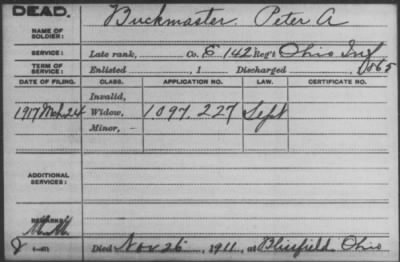 DEAD.
NAME OF SOLDIER: Buckmaster Peter A
SERVICE: Late rank, Co. E 142 Reg't Ohio Inf
TERM OF SERVICE: Enlisted , 1 Discharged
DATE OF FILING. CLASS. APPLICATION NO. LAW. CERTIFICATE NO.
Invalid,
1917 Mch 24 Widow, 1097.227 Sept
Minor,
ADDITIONAL SERVICES:
REMARKS:
Died Nov 25, 1911, at Blissfield Ohio